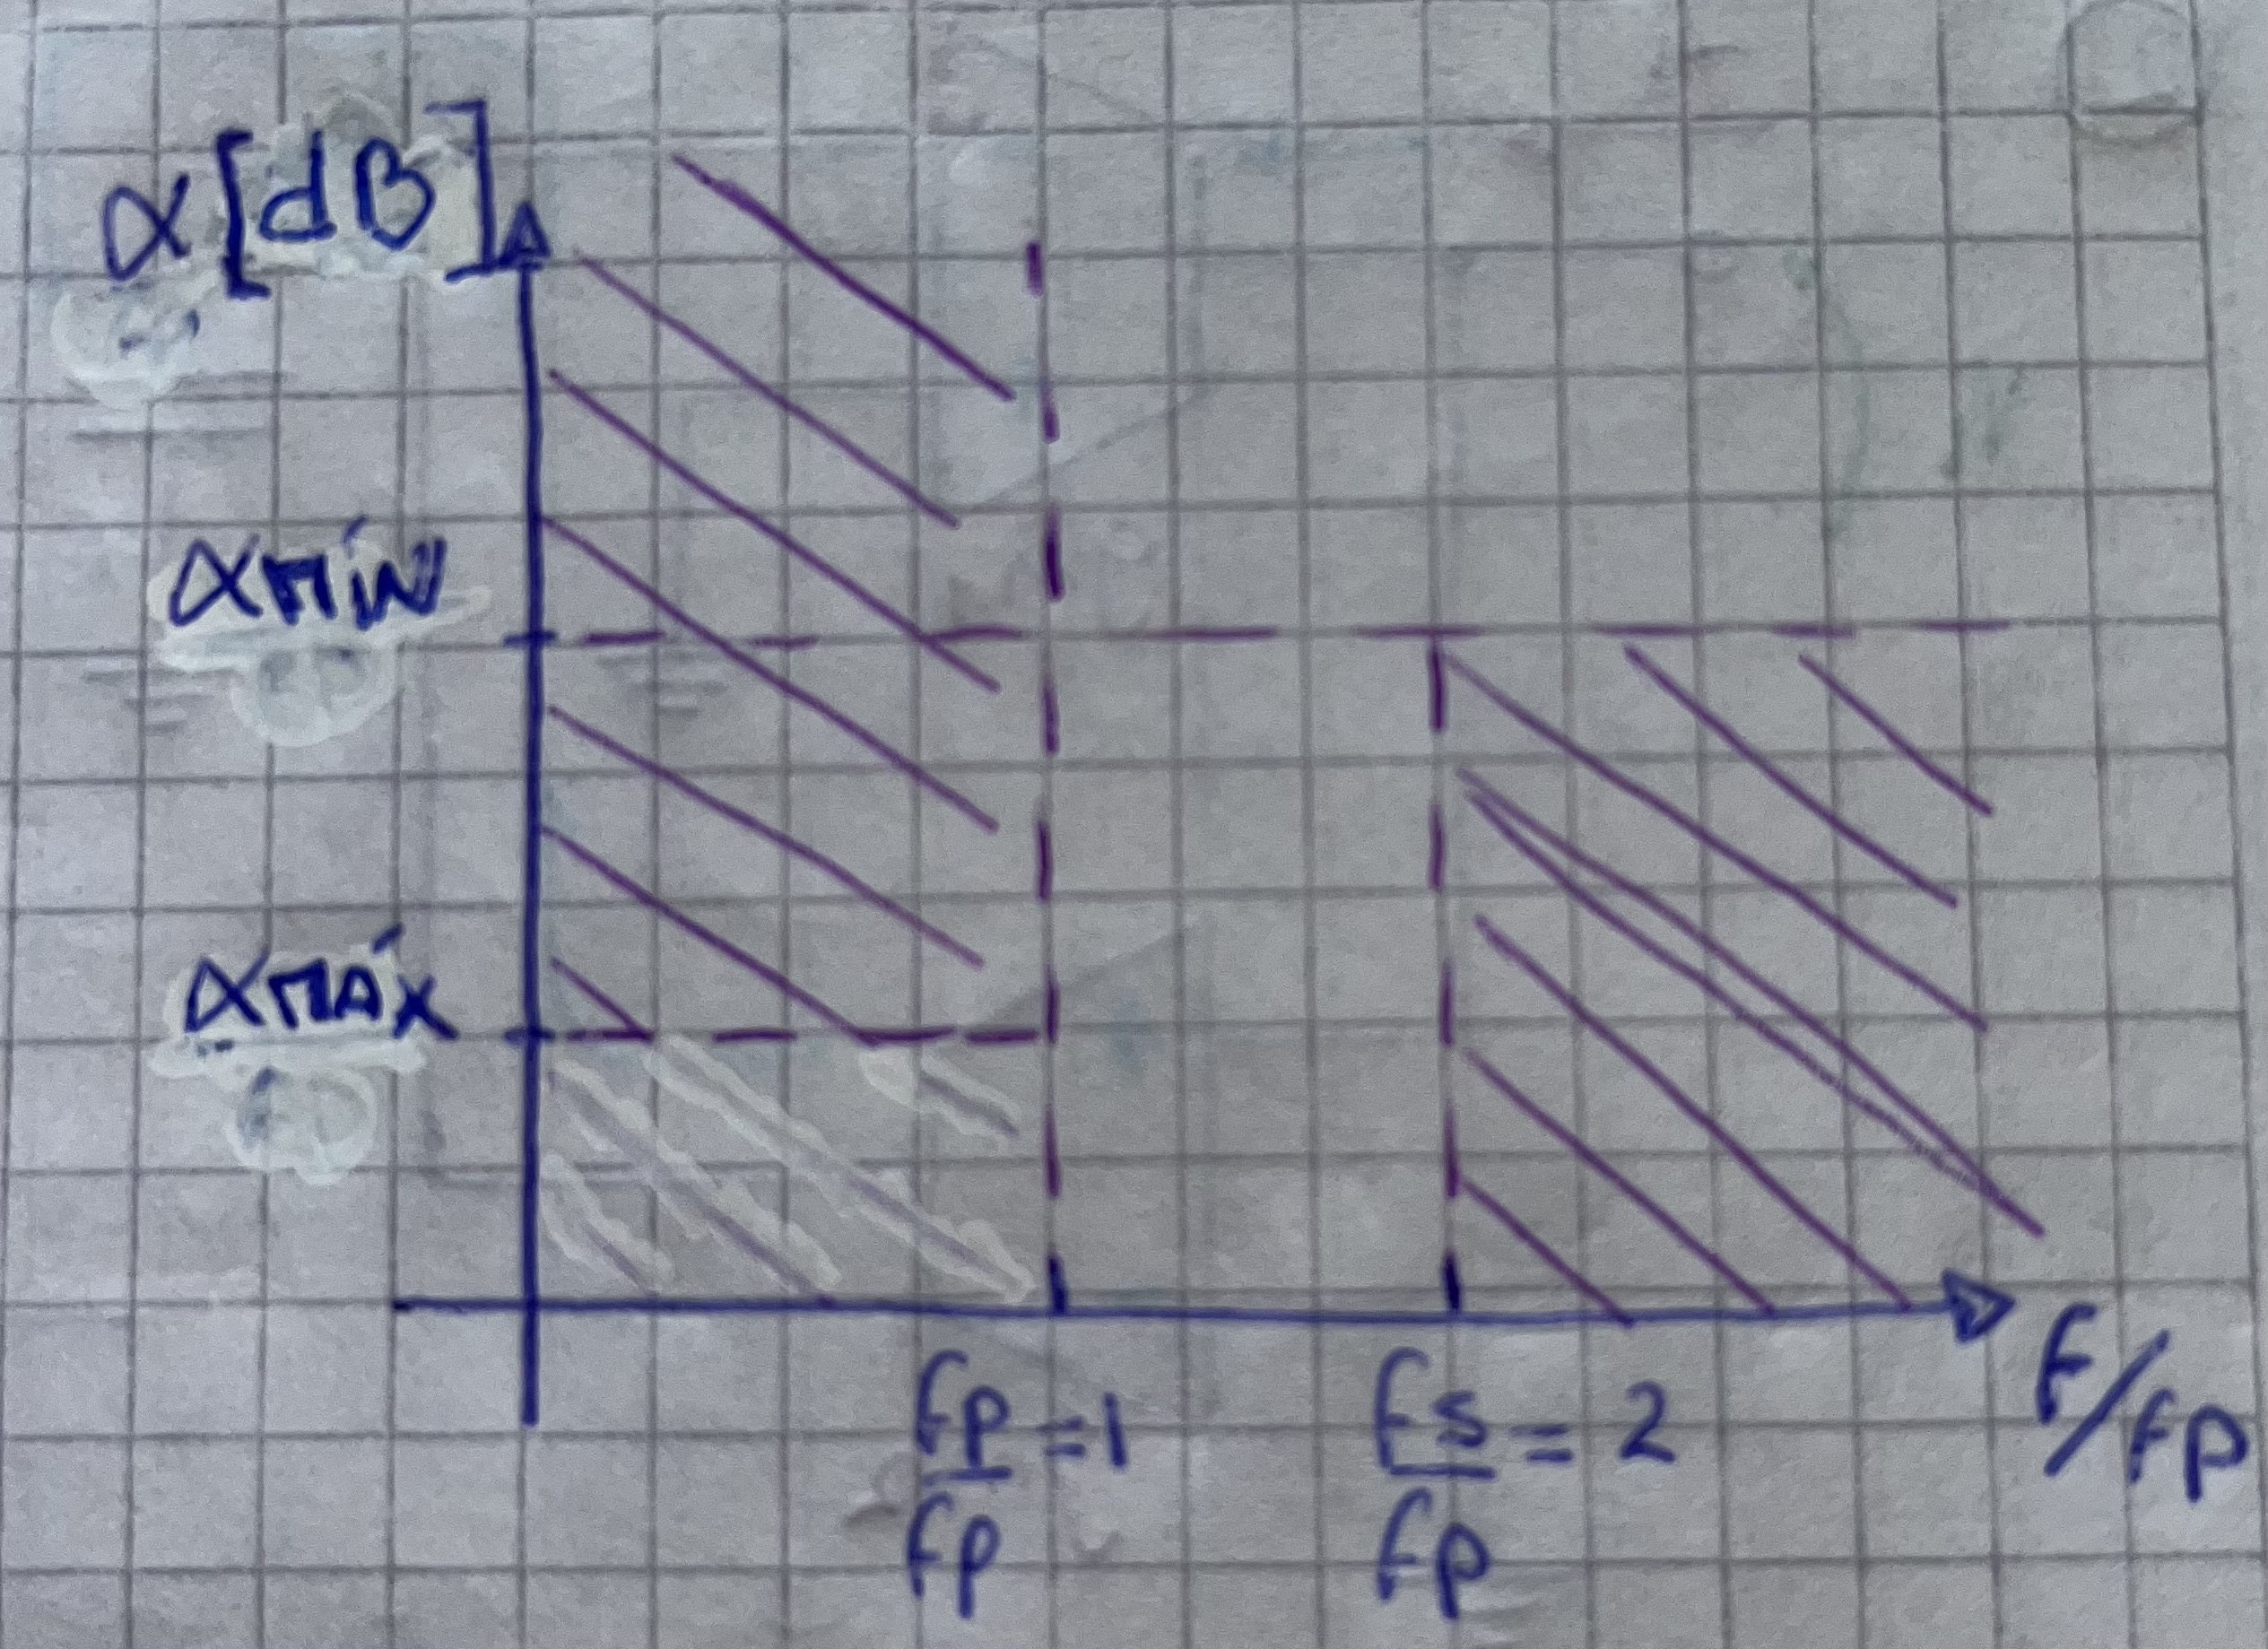 α[dB]
αmín
αmáx
fp/fp = 1
fs/fp = 2
f/fp